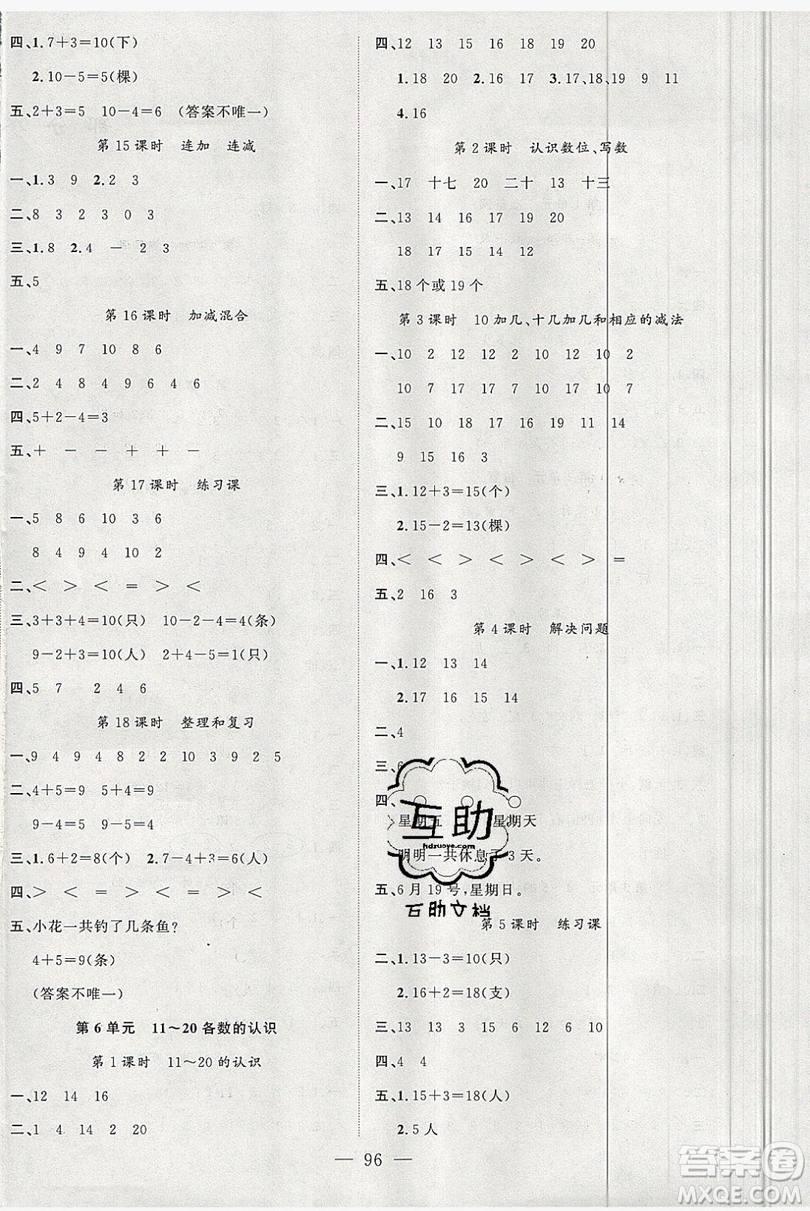 四、1.7+3=10(下)
2.10-5=5(棵)
五、2+3=5 10-4=6 (答案不唯一)
第15课时 连加 连减
一、1.3 9 2.2 3
二、8 3 2 3 0 3
三、1.8 2.4 - 2 3
五、5
第16课时 加减混合
一、4 9 7 10 8 6
二、2 4 8 4 9 6 4 6
四、5+2-4=3
五、+ - - + -
第17课时 练习课
一、5 8 6 10 3 6
8 4 9 4 10 2
二、< > < = > <
三、3+3+4=10(只) 10-2-4=4(条)
9-2+3=10(人) 2+4-5=1(只)
四、5 7 2 4 6
第18课时 整理和复习
一、9 4 9 4 8 2 2 10 3 9 2 5
二、4+5=9 5+4=9
9-4=5 9-5=4
三、1.6+2=8(个) 2.7-1=6(人)
四、> < > < = > <
五、小花一共钓了几条鱼?
4+5=9(条)
(答案不唯一)
第6单元 11~20各数的认识
第1课时 11~20的认识
一、12 14 16
二、1 4 14 2 20
四、12 13 15 16 19 20
1.18 20 2.17 3.17、18、19 9 11
4.16
第2课时 认识数位、写数
一、17 十七 20 二十 13 十三
二、13 14 16 17 19 20
18 17 15 14 13 12
五、18个或19个
第3课时 10加几、十几加几和相应的减法
一、10 2 12 12 10 12 10 2
10 7 17 17 10 17 10 7
二、15 10 18 17 18 19 14
9 15 16 2
三、1.12+3=15(个)
2.15-2=13(棵)
四、< < > < > < > =
五、2 16 3
第4课时 解决问题
一、1.12 13 14
2.17 16 15 14
二、4
三、6
四、
星期五 星期天
明明一共休息了3天。
五、6月19号,星期日。
第5课时 练习课
二、1.13-3=10(只)
2.16+2=18(支)
三、13 13 15 12 6 10
四、4 4
五、1.15+3=18(人)
2.5人
— 96 —
互助
hdzuoye.com
互助文档
答案圈
MXQE.COM